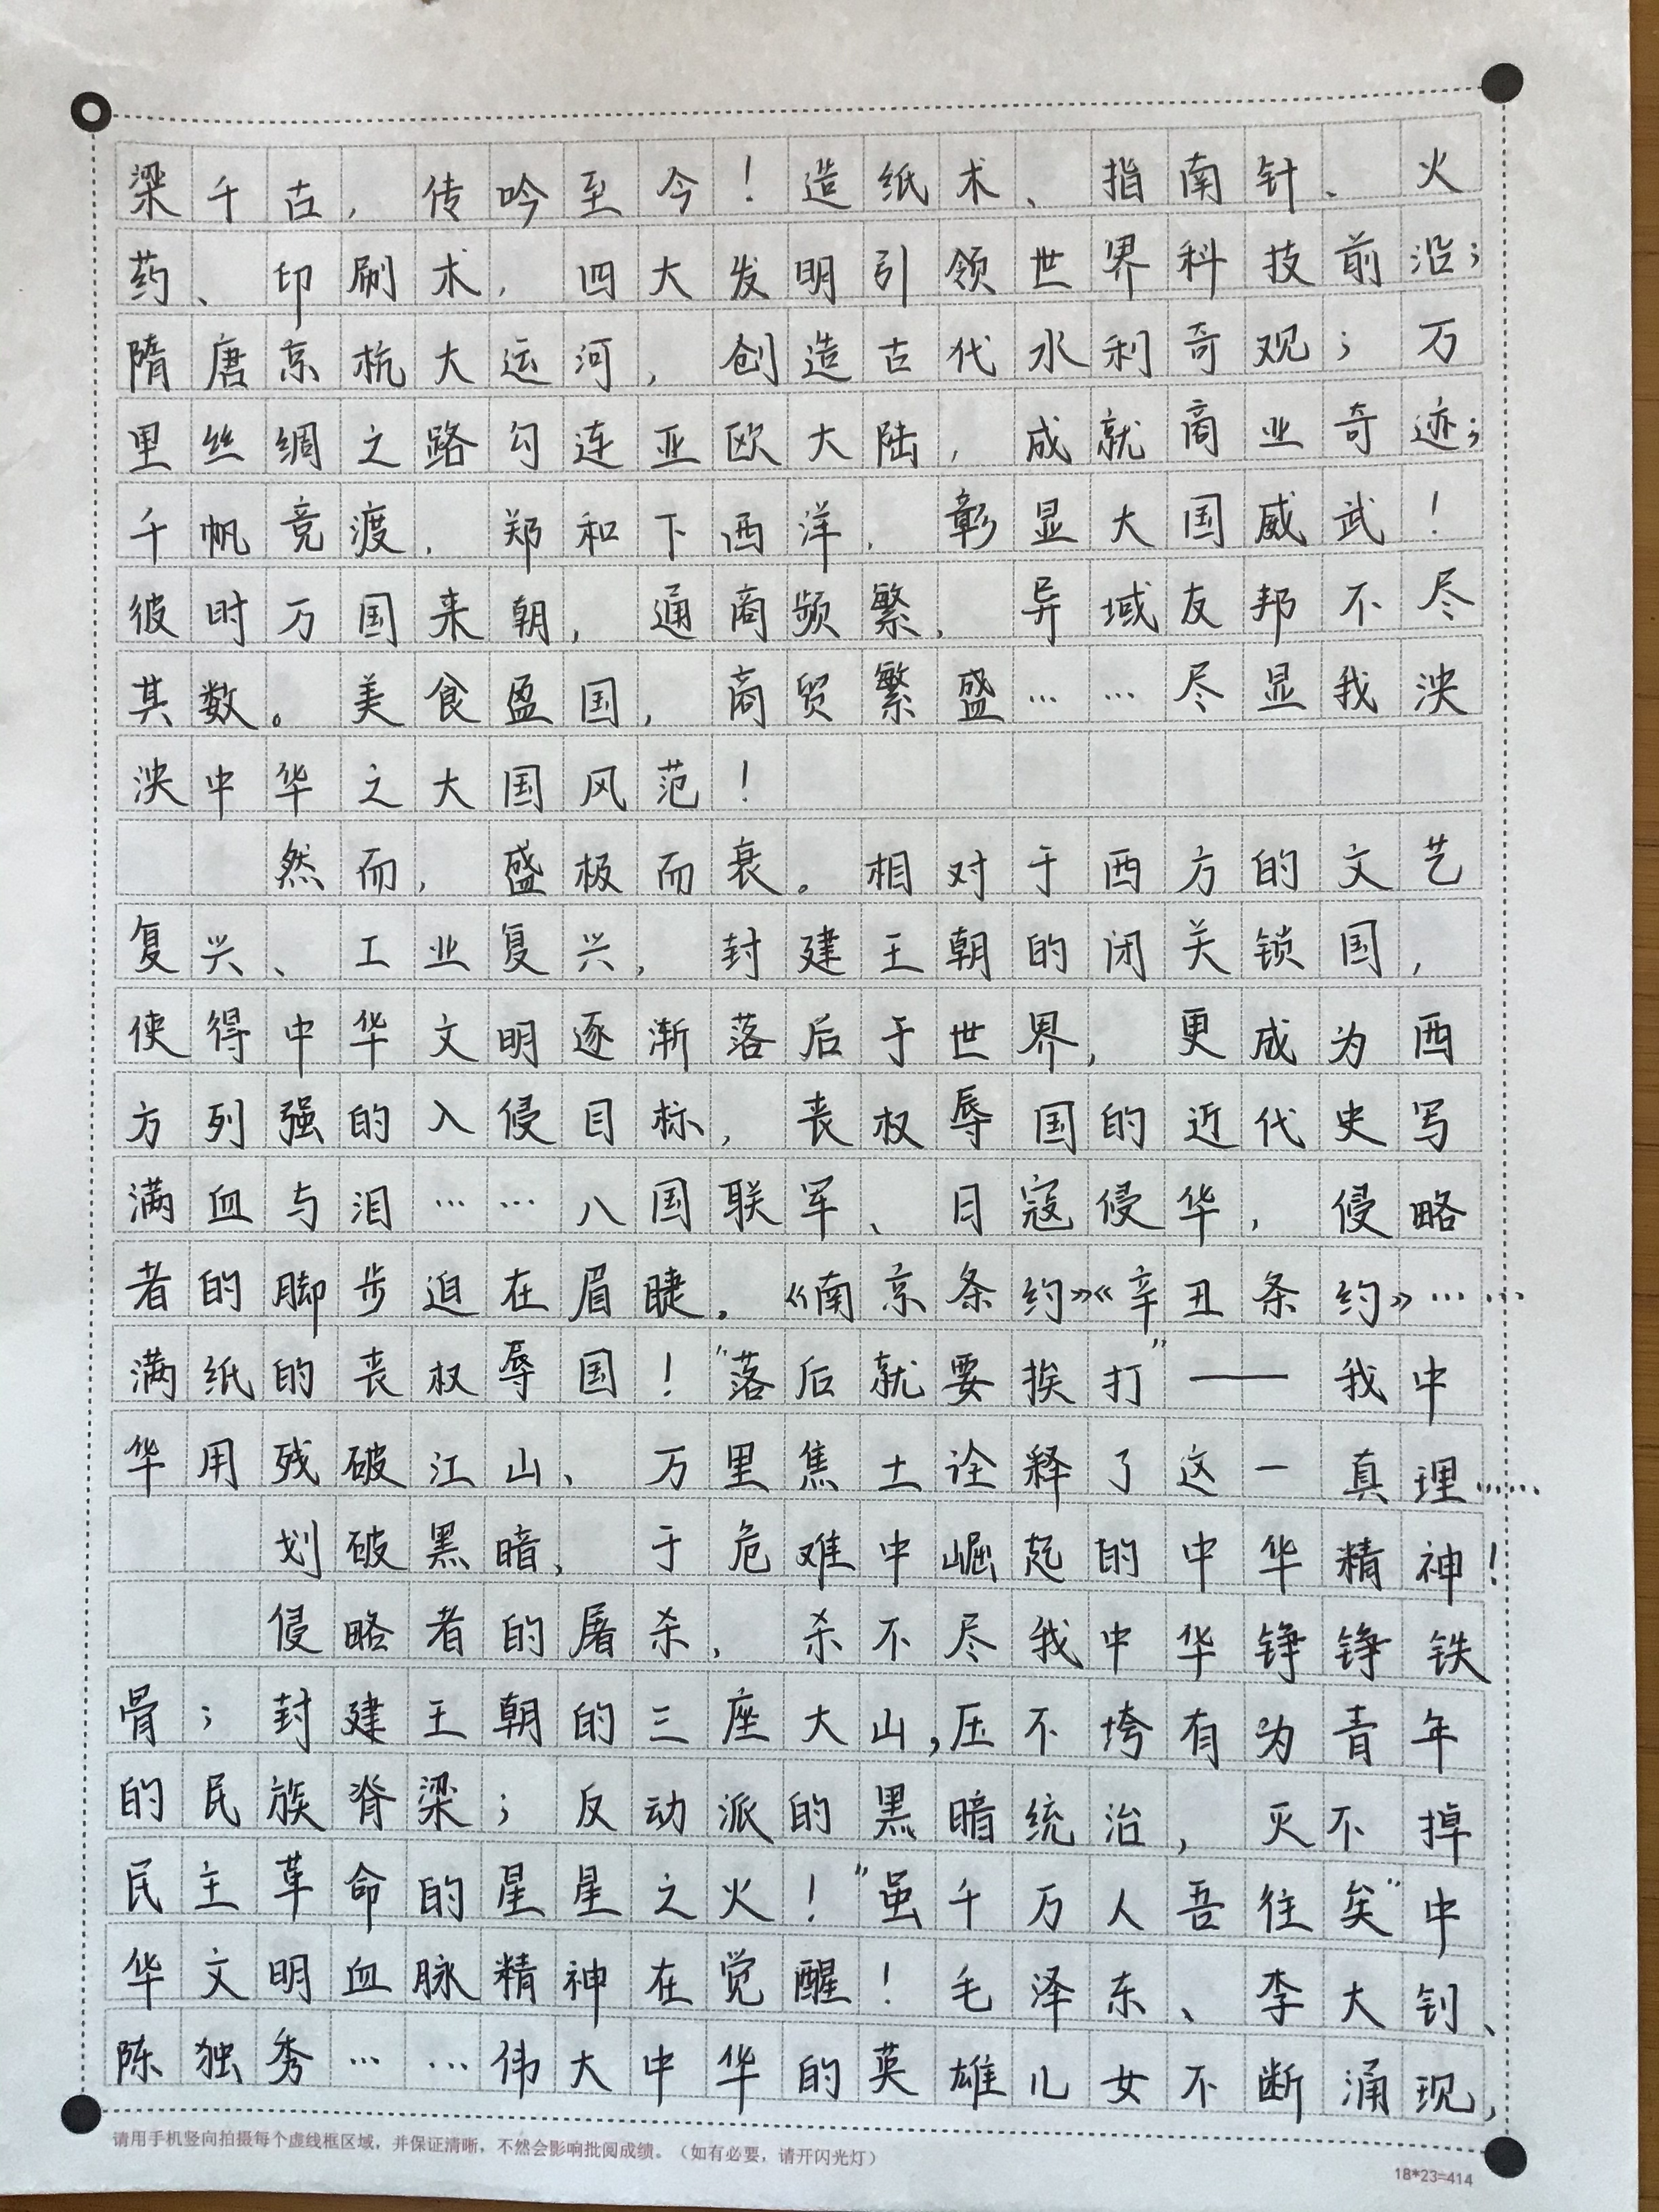 梁千古，传吟至今！造纸术、指南针、火
药、印刷术，四大发明引领世界科技前沿；
隋唐京杭大运河，创造古代水利奇观；万
里丝绸之路勾连亚欧大陆，成就商业奇迹；
千帆竞渡，郑和下西洋，彰显大国威武！
彼时万国来朝，通商频繁，异域友邦不尽
其数。美食盈国，商贸繁盛……尽显我泱
泱中华之大国风范！
然而，盛极而衰。相对于西方的文艺
复兴、工业复兴，封建王朝的闭关锁国，
使得中华文明逐渐落后于世界，更成为西
方列强的入侵目标，丧权辱国的近代史写
满血与泪……八国联军、日寇侵华，侵略
者的脚步迫在眉睫。《南京条约》《辛丑条约》……
满纸的丧权辱国！“落后就要挨打”——我中
华用残破江山、万里焦土诠释了这一真理……
划破黑暗，于危难中崛起的中华精神！
侵略者的屠杀，杀不尽我中华铮铮铁
骨；封建王朝的三座大山，压不垮有为青年
的民族脊梁；反动派的黑暗统治，灭不掉
民主革命的星星之火！“虽千万人吾往矣”中
华文明血脉精神在觉醒！毛泽东、李大钊、
陈独秀……伟大中华的英雄儿女不断涌现，
请用手机竖向拍摄每个虚线框区域，并保证清晰，不然会影响批阅成绩。（如有必要，请开闪光灯）
18*23=414